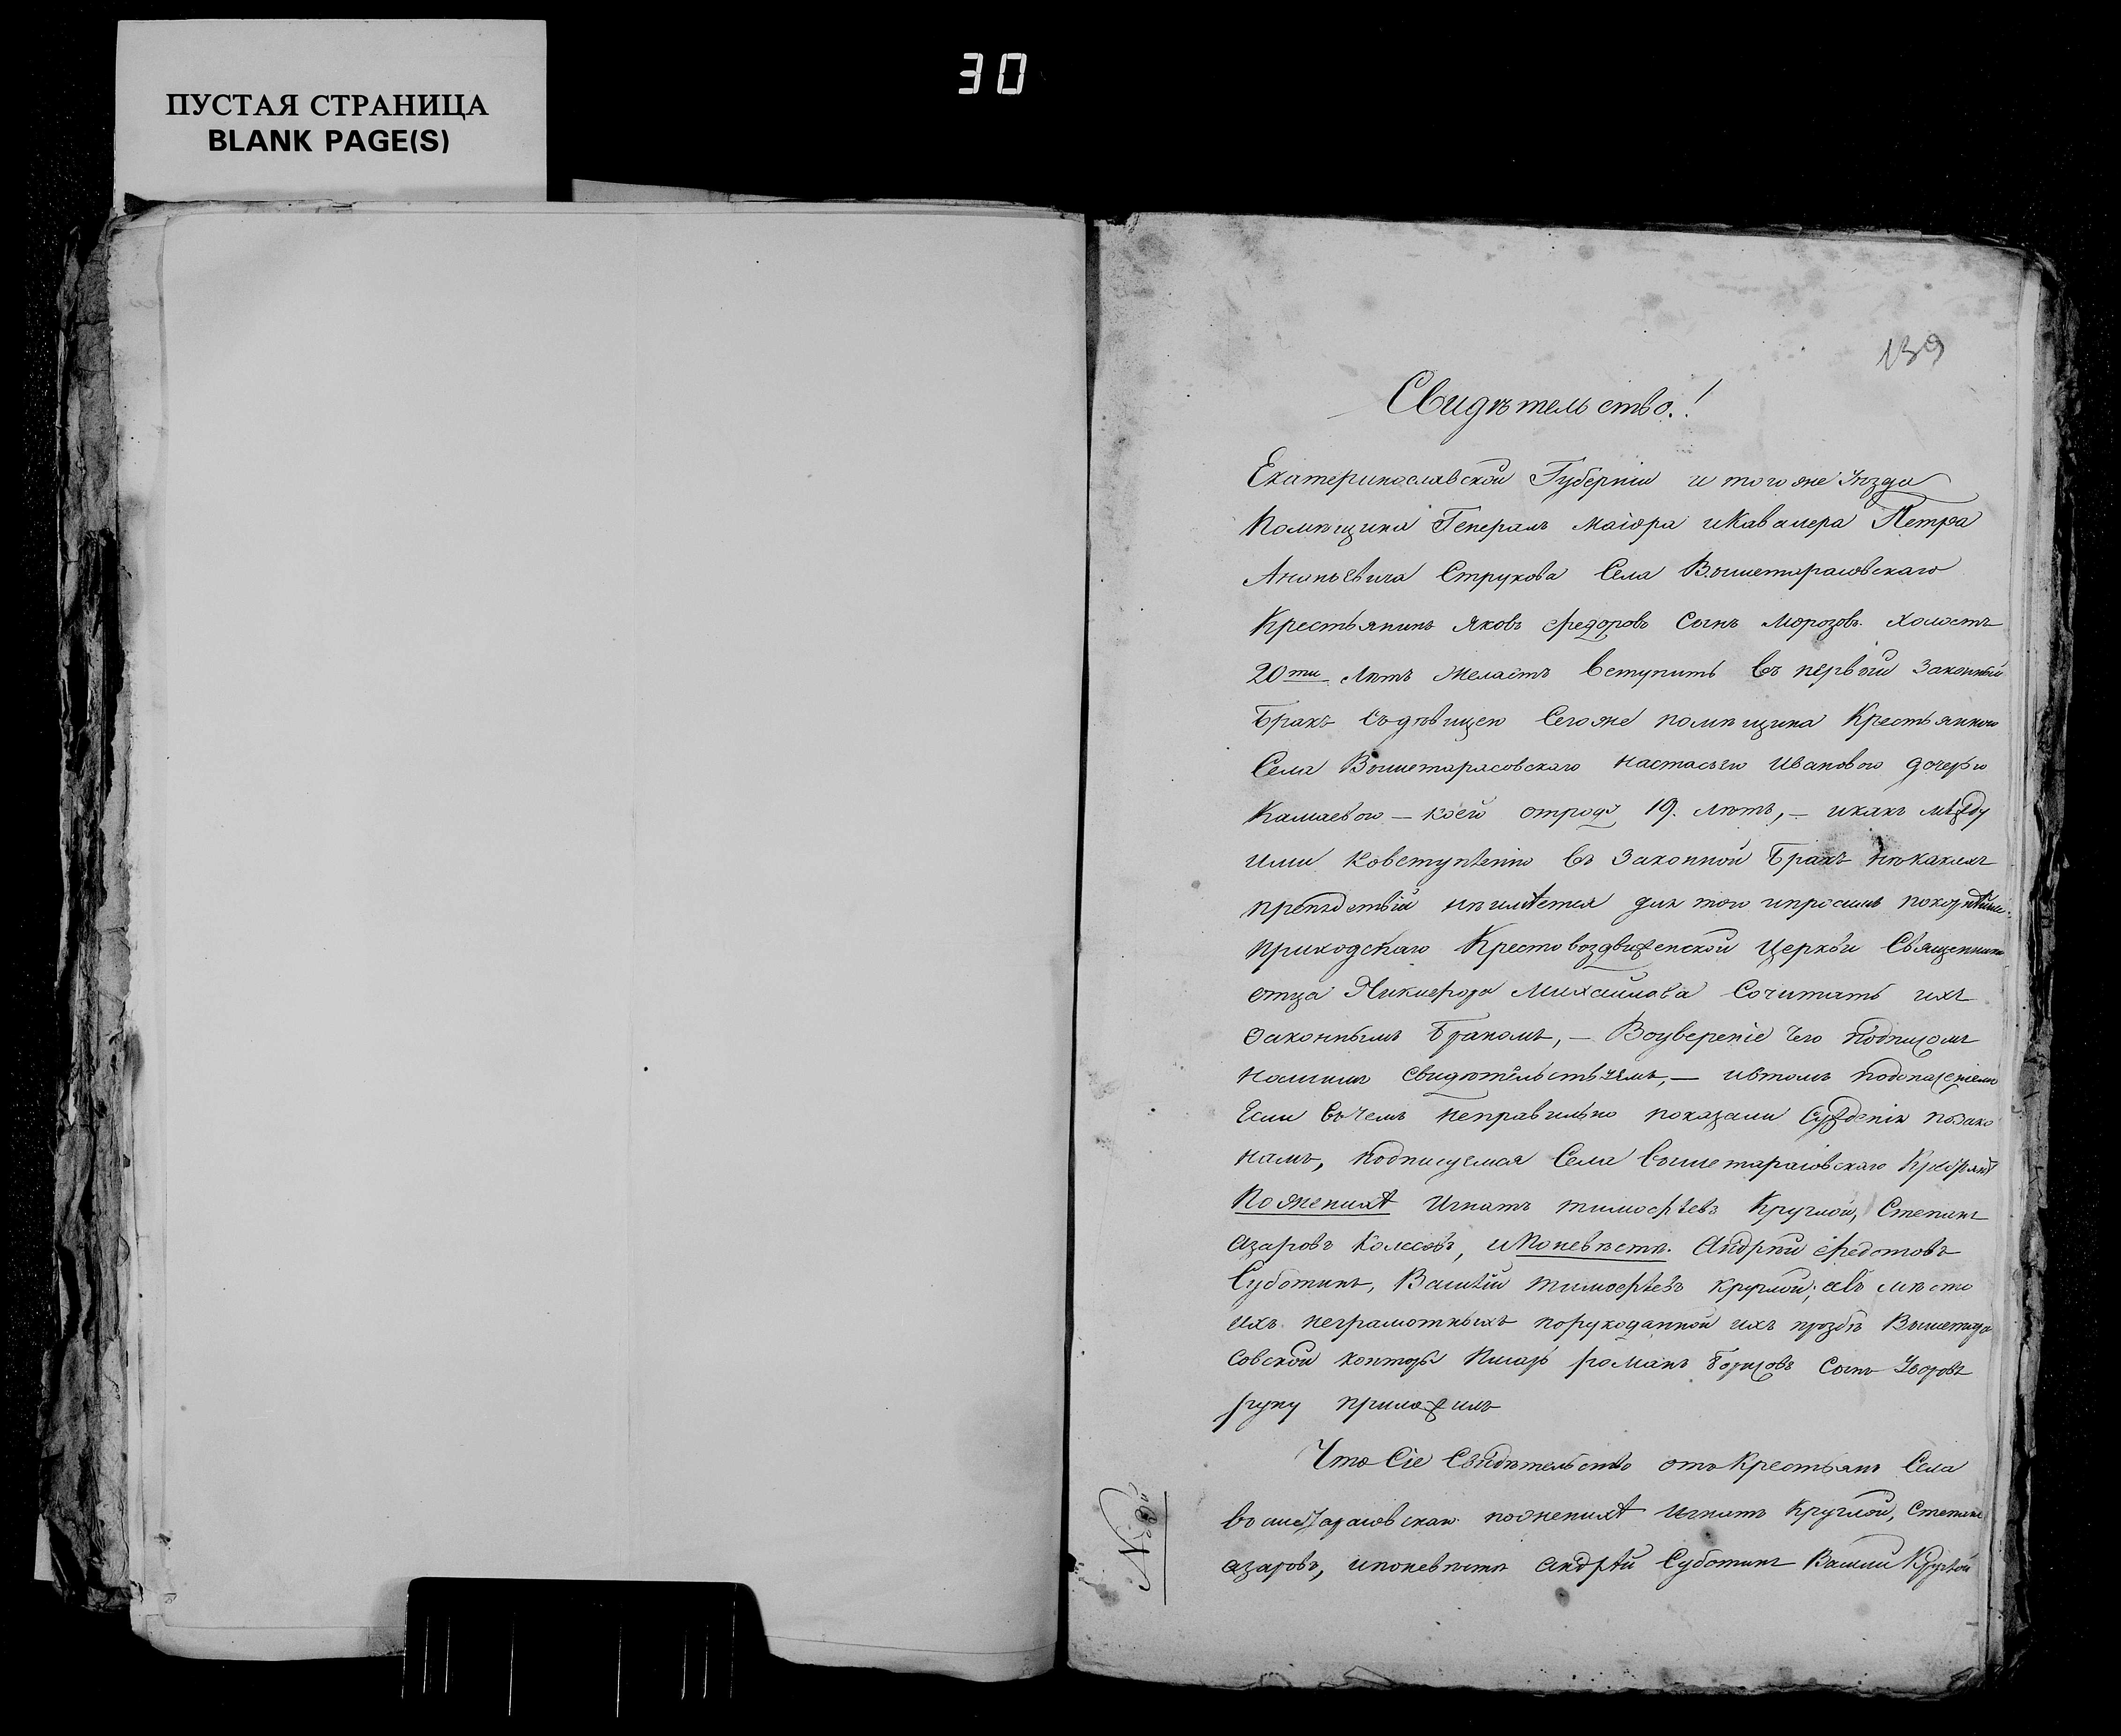 30
ПУСТАЯ СТРАНИЦА
BLANK PAGE(S)
139
Свидѣтельство.!
Екатеринославской Губерніи и того же Уѣзда
Помѣщика Генералъ Маіора и Кавалера Петра
Ананьевича Струкова Села Вышетарасовскаго
Крестьянинъ Яковъ Федоровъ Сынъ Морозовъ холостъ
20ти Лѣтъ Желаетъ Вступить въ первой Законный
Бракъ Съ дѣвицею Сего же помѣщика Крестьянкою
Села Вышетарасовскаго Настасьею Ивановою дочерью
– коей отроду 19. лѣтъ, – икакъ между
ими ковступленію въ Законной Бракъ някакихъ
препядствій неимѣется для того ипросимъ покорнѣйше
приходскаго Крестовоздвиженской Церкви Священника
отца Никифора Михайлова Сочитать ихъ
Законнымъ Бракомъ, – Воуверение чего Подписомъ
нашимъ свидѣтельствуемъ, – ивтомъ
Если въ чемъ неправильно показали Сужденія позако
намъ, подписуемся Села Вышетарасовскаго
Поженихѣ Игнатъ тимофѣевъ Круглой, Степанъ
азаровъ, ипоневѣстѣ. Андрѣй Федотовъ
Суботинъ, Василій тимофѣевъ круглой; авъ мѣсто
ихъ неграмотныхъ порукоданной ихъ прозбѣ Вышетара
совской конторы Писарь романъ Борисовъ Сынъ
руку приложилъ
Что Сіе Свидѣтельство отъ Крестьянъ Села
вышетарасовскаго поженихѣ Игнатъ Круглой, Степанъ
азаровъ, ипоневѣстѣ андрѣй Суботинъ Василій Круглой